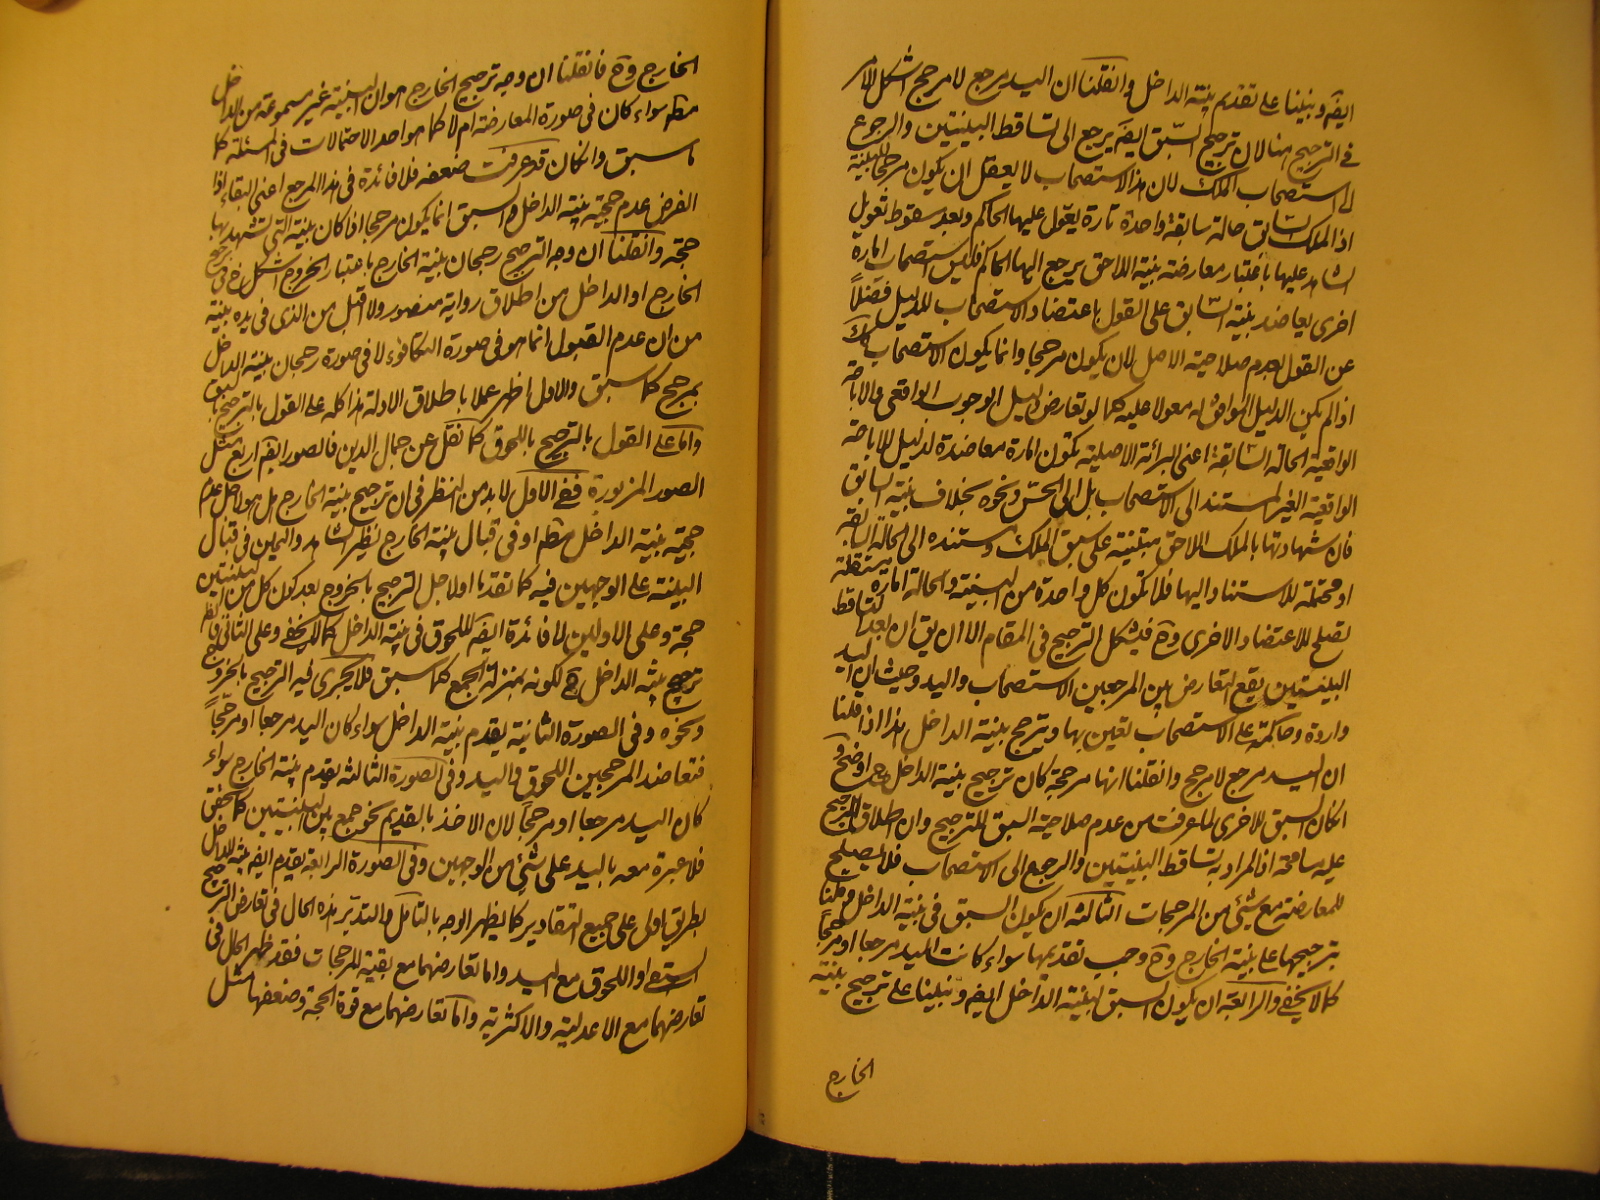 ايضا وبنينا على تقديم بينة الداخل وان قلنا ان اليد مرجع لا مرجح اشكل الامر
في الترجيح هنا لان ترجيح السبق ايضا يرجع الى تساقط البينتين والرجوع
الى استصحاب الملك لان هذا الاستصحاب لا يعقل ان يكون مرجحا للبينة
اذ الملك السابق حالة سابقة واحدة تارة يعول عليها الحاكم وبعد سقوط تعويل
الشاهد عليها باعتبار معارضة بينة اللاحق يرجع اليها الحاكم فليس استصحاب امارة
اخرى يعاضد بينة السابق على القول باعتضاد الاستصحاب للدليل فضلا
عن القول بعدم صلاحية الاصل لان يكون مرجحا وانما يكون الاستصحاب كذلك
اذا لم يكن الدليل الموافق له معولا عليه كما لو تعارض دليل الوجوب الواقعي والاباحة
الواقعية الحالة السابقة اعني البرائة الاصلية تكون امارة معاضدة لدليل الاباحة
الواقعية الغير المستند الى الاستصحاب بل الى الحسّ ونحوه بخلاف بينة السابق
فان شهادتها بالملك اللاحق مبتنية على سبق الملك ومستنده الى الحالة السابقة
او محتملة للاستناد اليها فلا تكون كل واحدة من البينة والحالة امارة مستقلة
تصلح للاعتضاد الاخرى وح فيشكل الترجيح في المقام الا ان يق ان بعد التساقط
البينتين يقع التعارض بين المرجعين الاستصحاب واليد وحيث ان اليد
واردة وحاكمة على الاستصحاب تعين بها وترجح بينة الداخل هذا اذا قلنا
ان اليد مرجع لا مرجح وان قلنا انها مرجحة كان ترجيح بينة الداخل ح اوضح و
ان كان السبق للاخرى لما عرفت من عدم صلاحية السبق للترجيح وان اطلاق المرجح
عليه مسامحة اذ المراد به تساقط البينتين والرجع الى الاستصحاب فلا يصلح
للمعارضة مع شئ من المرجحات الثالثة ان يكون السبق في بينة الداخل وقلنا
بترجيحها على بينة الخارج وح وجب تقديمها سواء كانت اليد مرجعا او مرجحا
كما لا يخفى والرابعة ان يكون السبق لبينة الداخل ايضا وبنينا على ترجيح بينة
الخارج
الخارج وح فان قلنا ان وجه ترجيح الخارج هو ان البينة غير مسموعة من الداخل
مطم سواء كان في صورة المعارضة ام لا كما هو احد الاحتمالات في المسئلة كما
ما سبق وان كان قد عرفت ضعفه فلا فائدة في هذا المرجع اعني البقاء اذا
الفرض عدم حجية بينة الداخل والسبق انما يكون مرجحا اذا كان بينة التي تشهد بها
حجة وان قلنا ان وجه الترجيح رجحان بينة الخارج باعتبار الخروج اشكل ح في ترجيح
الخارج او الداخل من اطلاق رواية منصور ولا اقبل من الذي في يده بينة
من ان عدم القبول انما هو في صورة التكافوء لا في صورة رجحان بينة الداخل
بمرجح كما سبق والاول اظهر عملا باطلاق الادلة هذا كله على القول بالترجيح بالسبق
واما على القول بالترجيح باللحوق كما نقل عن جمال الدين فالصور ايضا اربع مثل
الصور المزبورة ففي الاول لا بد من النظر في ان ترجيح بينة الخارج هل هو لاجل عدم
حجية بينة الداخل مطم او في قبال بينة الخارج نظير الشاهد واليمين في قبال
البينة على الوجهين فيه كما تقدما او لاجل الترجيح بالخروج بعد كون كل من البينتين
حجة وعلى الاولين لا فائدة ايضا للحوق في بينة الداخل كما لا يخفى وعلى الثاني فالظ
ترجيح بينة الداخل ح لكونه بمنزلة الجمع كما سبق فلا يجرى فيه الترجيح بالخروج
ونحوه وفي الصورة الثانية يقدم بينة الداخل سواء كان اليد مرجعا او مرجحا
فتعاضد المرجحين اللحوق واليد وفي الصورة الثالثة يقدم بينة الخارج سواء
كان اليد مرجعا او مرجحا لان الاخذ بالقديم نحو جمع بين البينتين كما تحقق
فلا عبرة معه باليد على شئ من الوجهين وفي الصورة الرابعة يقدم ايضا بينة الداخل
بطريق اولى على جميع التقادير كما يظهر الوجه بالتامل والتدبر هذه الحال في تعارض الترجيح
السبق او اللحوق مع اليد واما تعارضهما مع بقية المرجحات فقد ظهر الحال في
تعارضهما مع الاعدلية والاكثرية واما تعارضهما مع قوة الحجة وضعفها مثل